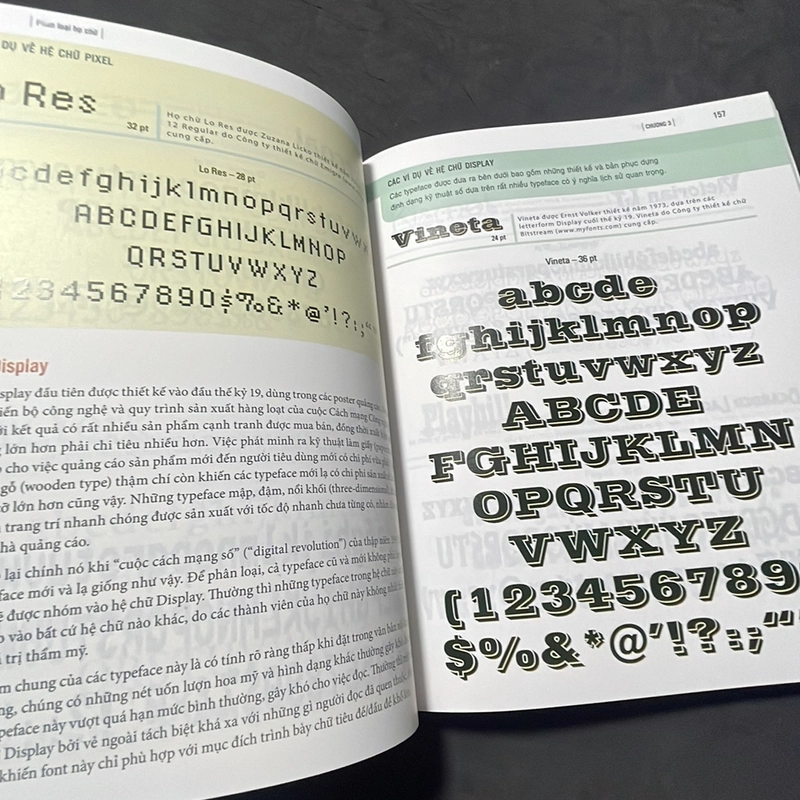 Phân loại họ chữ
DỤ VỀ HỆ CHỮ PIXEL
Res
32 pt
Họ chữ Lo Res được Zuzana Licko thiết kế
12 Regular do Công ty thiết kế chữ Emigre
cung cấp.
Lo Res – 28 pt
cdefghijklmnopqrstuvwx
ABCDEFGHIJKLMNOP
QRSTUVWXYZ
1234567890$%&*@'!?:;"
Display
display đầu tiên được thiết kế vào đầu thế kỷ 19, dùng trong các poster quảng
tiến bộ công nghệ và quy trình sản xuất hàng loạt của cuộc Cách mạng Công
kết quả có rất nhiều sản phẩm cạnh tranh được mua bán, đồng thời
lớn hơn phải chi tiêu nhiều hơn. Việc phát minh ra kỹ thuật làm giấy
cho việc quảng cáo sản phẩm mới đến người tiêu dùng mới có chi phí
gỗ (wooden type) thậm chí còn khiến các typeface mới lạ có chi phí sản xuất
lớn hơn cũng vậy. Những typeface mập, đậm, nổi khối (three-dimensional)
trang trí nhanh chóng được sản xuất với tốc độ nhanh chưa từng có,
nhà quảng cáo.
lại chính nó khi “cuộc cách mạng số” (“digital revolution”) của thập niên
face mới và lạ giống như vậy. Để phân loại, cả typeface cũ và mới không
được nhóm vào hệ chữ Display. Thường thì những typeface trong hệ chữ
vào bất cứ hệ chữ nào khác, do các thành viên của họ chữ này không
trị thẩm mỹ.
chung của các typeface này là có tính rõ ràng thấp khi đặt trong văn bản
chúng có những nét uốn lượn hoa mỹ và hình dạng khác thường gây
typeface này vượt quá hạn mức bình thường, gây khó cho việc đọc. Thường thì
Display bởi vẻ ngoài tách biệt khá xa với những gì người đọc đã quen thuộc,
khiến font này chỉ phù hợp với mục đích trình bày chữ tiêu đề/đầu đề
CHƯƠNG 3
157
CÁC VÍ DỤ VỀ HỆ CHỮ DISPLAY
Các typeface được đưa ra bên dưới bao gồm những thiết kế và bản phục dựng
định dạng kỹ thuật số dựa trên rất nhiều typeface có ý nghĩa lịch sử quan trọng.
Vineta
24 pt
Vineta được Ernst Volker thiết kế năm 1973, dựa trên các
letterform Display cuối thế kỷ 19. Vineta do Công ty thiết kế chữ
Bitstream (www.myfonts.com) cung cấp.
Vineta – 36 pt
abcde
fghijklmnop
qrstuvwxyz
ABCDE
FGHIJKLMN
OPQRSTU
VWXYZ
(123456789
$%&*@'!?:;“”